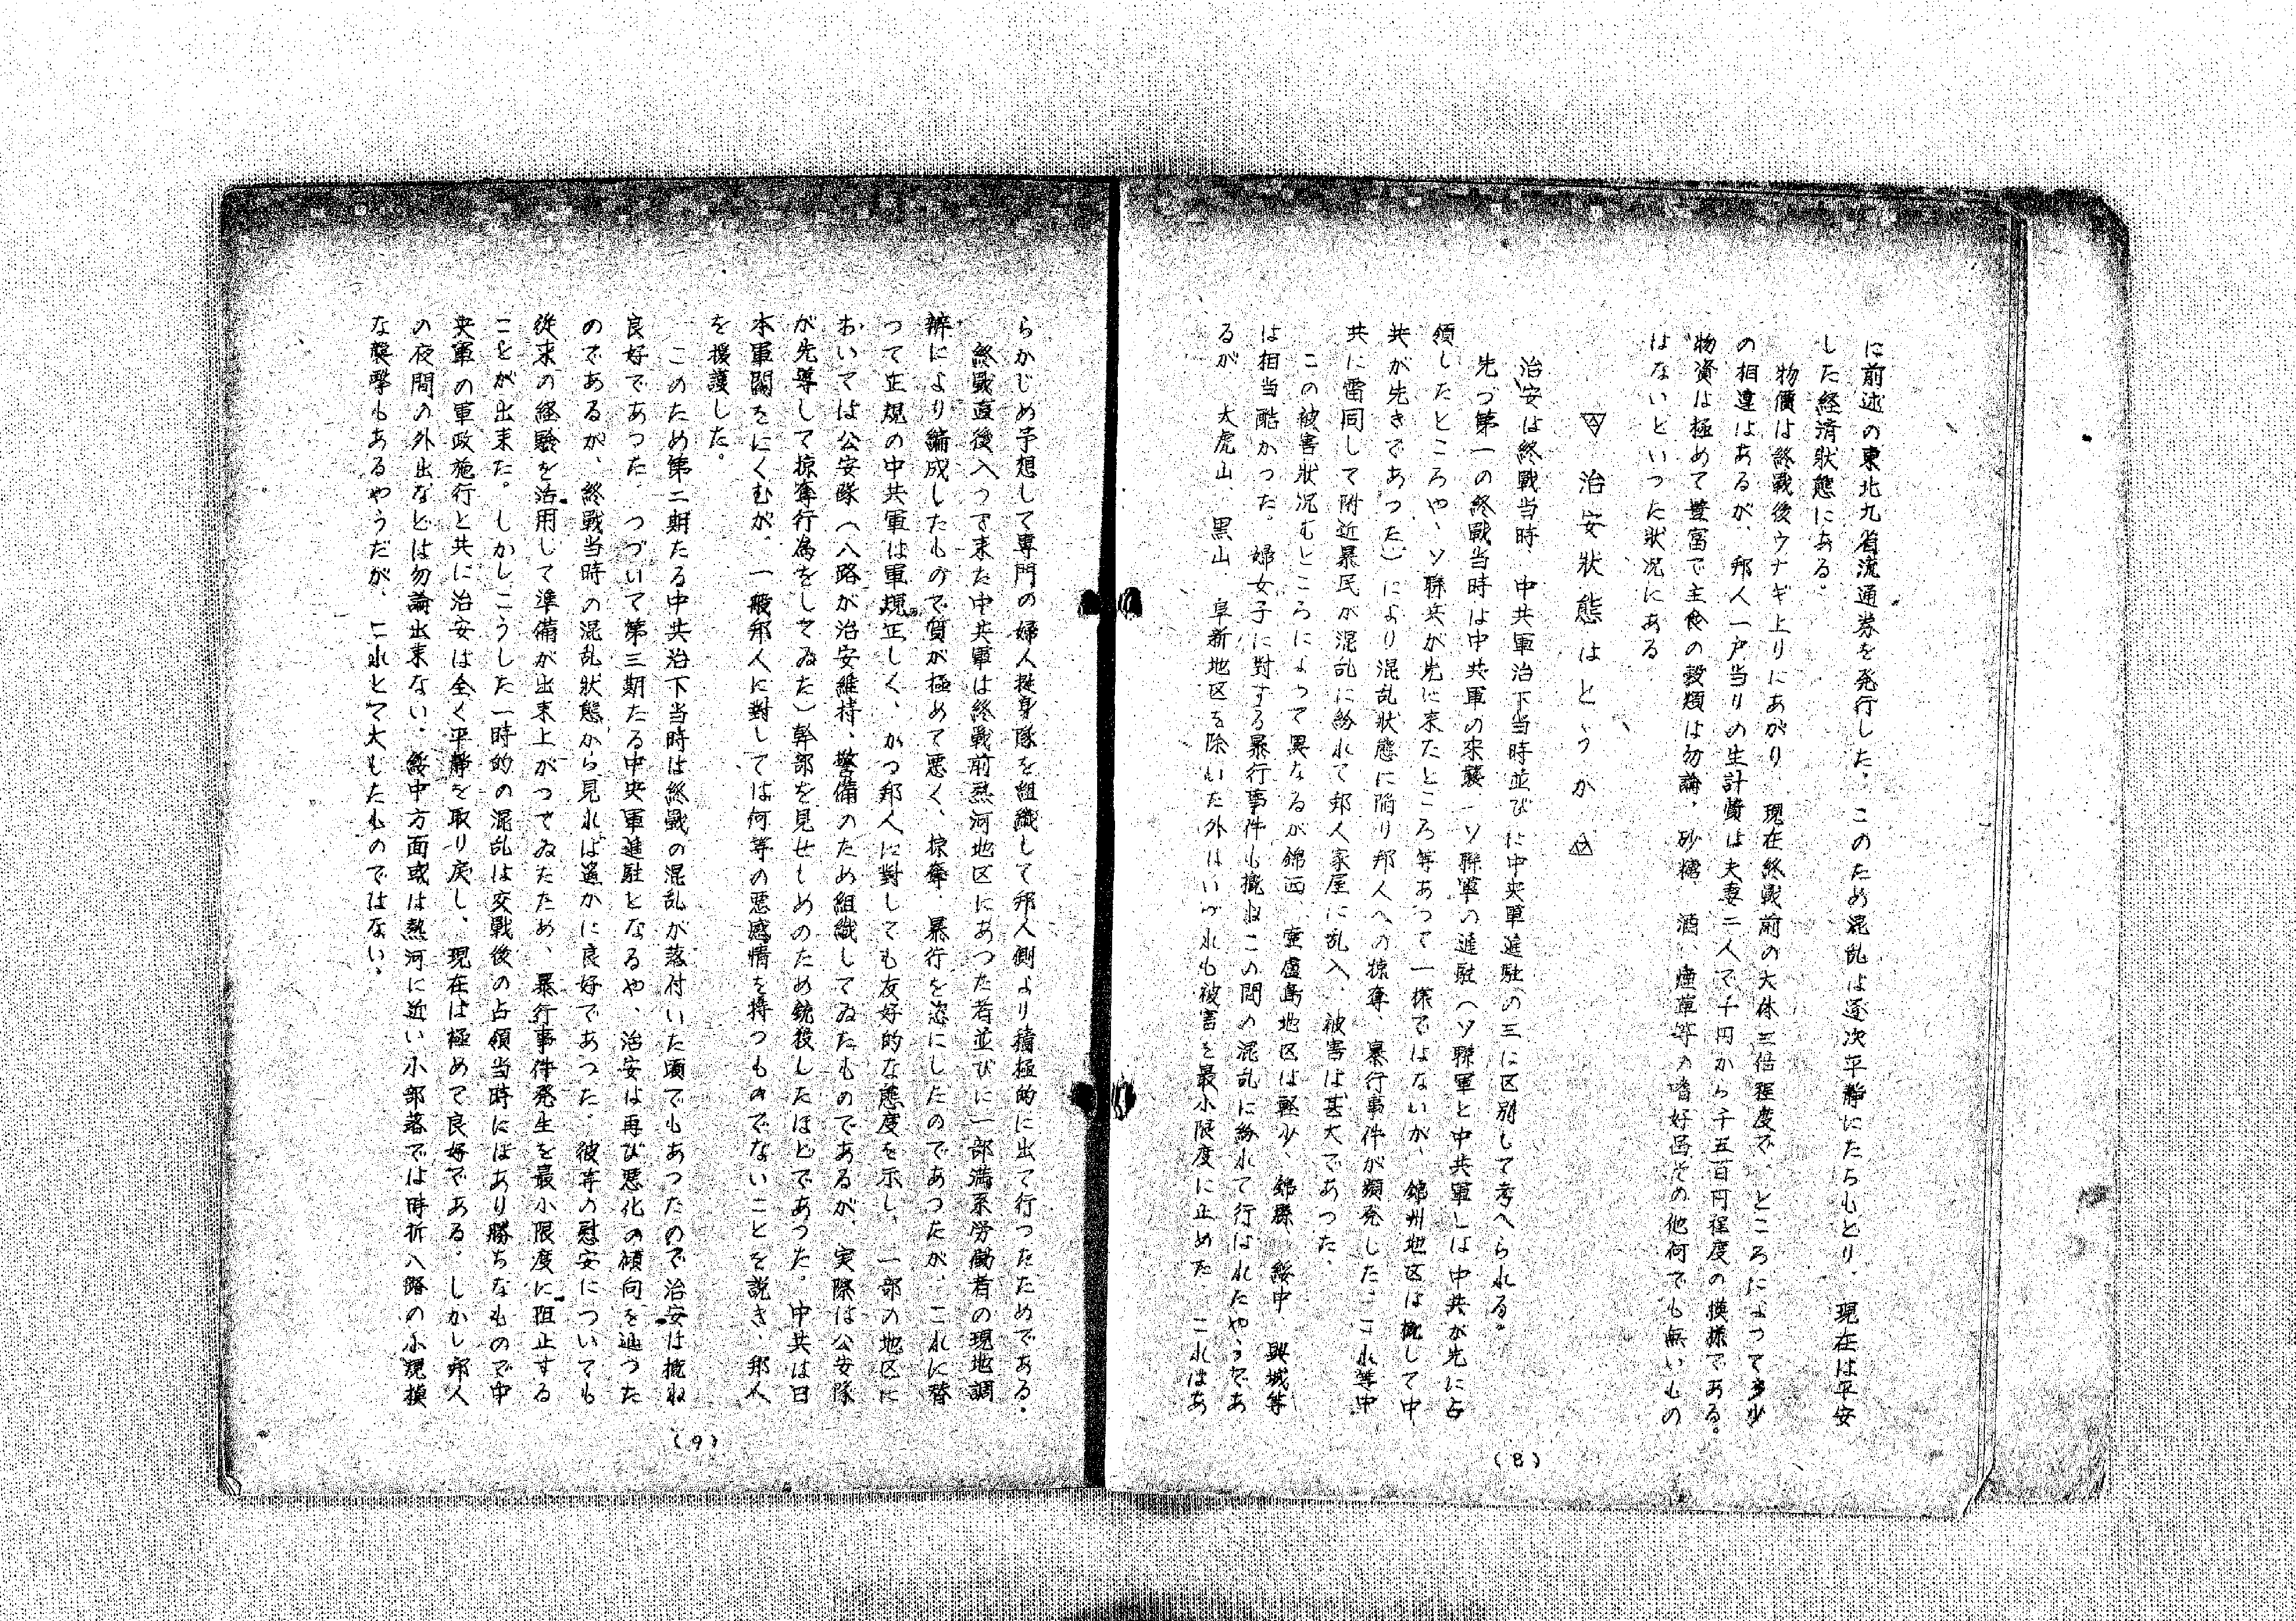 に前述の東北九省流通券を発行した。このため混乱は逐次平静にたちもどり、現在は平安
した経済状態にある。
物價は終戰後ウナギ上りにあがり、現在終戰前の大体三倍程度で、ところによつて多少
の相違はあるが、邦人一戸当りの生計費は夫妻二人で千円から千五百円程度の模様である。
物資は極めて豊富で主食の穀類は勿論、砂糖、酒、煙草等の嗜好品その他何でも無いもの
はないといつた状況にある
治安狀態はどうか
治安は終戰当時、中共軍治下当時並びに中央軍進駐の三に区別して考へられる。
先づ第一の終戰当時は中共軍の来襲、ソ聯軍の進駐(ソ聯軍と中共軍しは中共が先に占
領したところや、ソ聯兵が先に来たところ等あつて一様ではないが、錦州地区は概して中
共が先きであつた)により混乱状態に陥り邦人への掠奪、暴行事件が頻発した。これ等中
共に雷同して附近暴民が混乱に紛れて邦人家屋に乱入、被害は甚大であつた。
この被害狀况もところによつて異なるが錦西、葫蘆島地区は軽少、錦縣、綏中、興城等
は相当酷かつた。婦女子に對する暴行事件も概ねこの間の混乱に紛れて行はれたやうであ
るが 大虎山、黒山、阜新地区を除いた外はいづれも被害を最小限度に止めた これはあ
(8)
らかじめ予想して専門の婦人挺身隊を組織して邦人側より積極的に出て行つたためである。
終戰直後入つて来た中共軍は終戰前熱河地区にあつた者並びに一部満系労働者の現地調
辨により編成したもので質が極めて悪く、掠奪、暴行を恣にしたのであつたが、これに替
つて正規の中共軍は軍規正しく、かつ邦人に對しても友好的な態度を示し、一部の地区に
おいては公安隊(八路が治安維持、警備のため組織してゐたものであるが、実際は公安隊
が先導して掠奪行為をしてゐた)幹部を見せしめのため銃殺したほどであつた。中共は日
本軍閥をにくむが、一般邦人に對しては何等の悪感情を持つものでないことを説き、邦人
を援護した。
このため第二期たる中共治下当時は終戰の混乱が落付いた頃でもあつたので治安は概ね
良好であつた。つづいて第三期たる中央軍進駐となるや、治安は再び悪化の傾向を辿つた
のであるが、終戰当時の混乱狀態から見れば遙かに良好であつた。彼等の慰安についても
従来の経驗を活用して準備が出来上がつてゐたため、暴行事件発生を最小限度に阻止する
ことが出来た。しかしこうした一時的の混乱は交戰後の占領当時にはあり勝ちなもので中
央軍の軍政施行と共に治安は全く平靜を取り戻し、現在は極めて良好である。しかし邦人
の夜間の外出などは勿論出来ない。綏中方面或は熱河に近い小部落では時折八路の小規模
な襲擊もあるやうだが、これとて大したものではない。
(9)